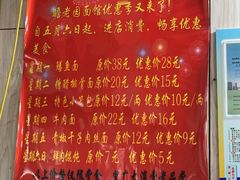 老园面馆优惠季又来了!
自五月六日起,进店消费,畅享优惠
美食
星期一 鳝鱼面 原价38元 优惠28元
星期二 糖醋排骨面 原价20元 优惠15元
星期三 特色小面 原价12元/两 优惠10元/两
星期四 牛肉面 原价22元 优惠16元
星期五 干子肉丝面 原价12元 优惠9元
星期六日 鲜肉 原价7元 优惠5元